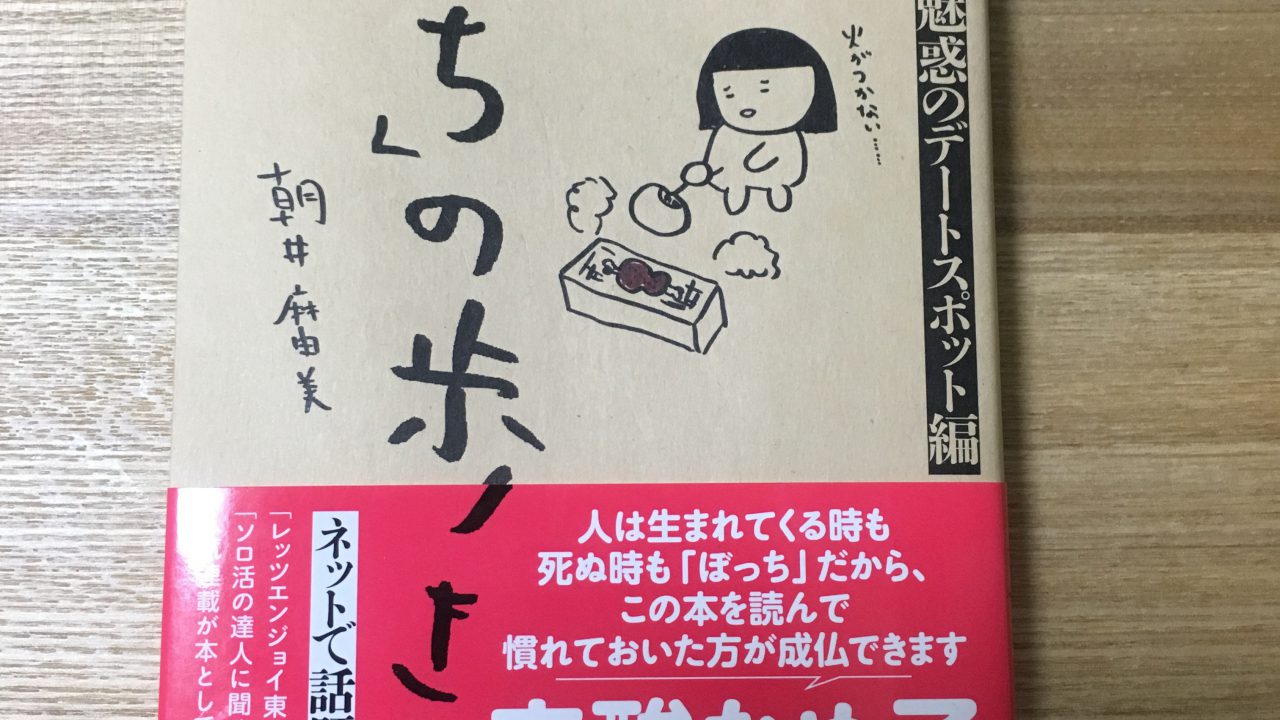 魅惑のデートスポット編
火がつかない……
ち」の歩き
朝井麻由美
人は生まれてくる時も
死ぬ時も「ぼっち」だから、
この本を読んで
慣れておいた方が成仏できます
ネットで話
「レッツエンジョイ東
「ソロ活の達人に聞
載が本とし